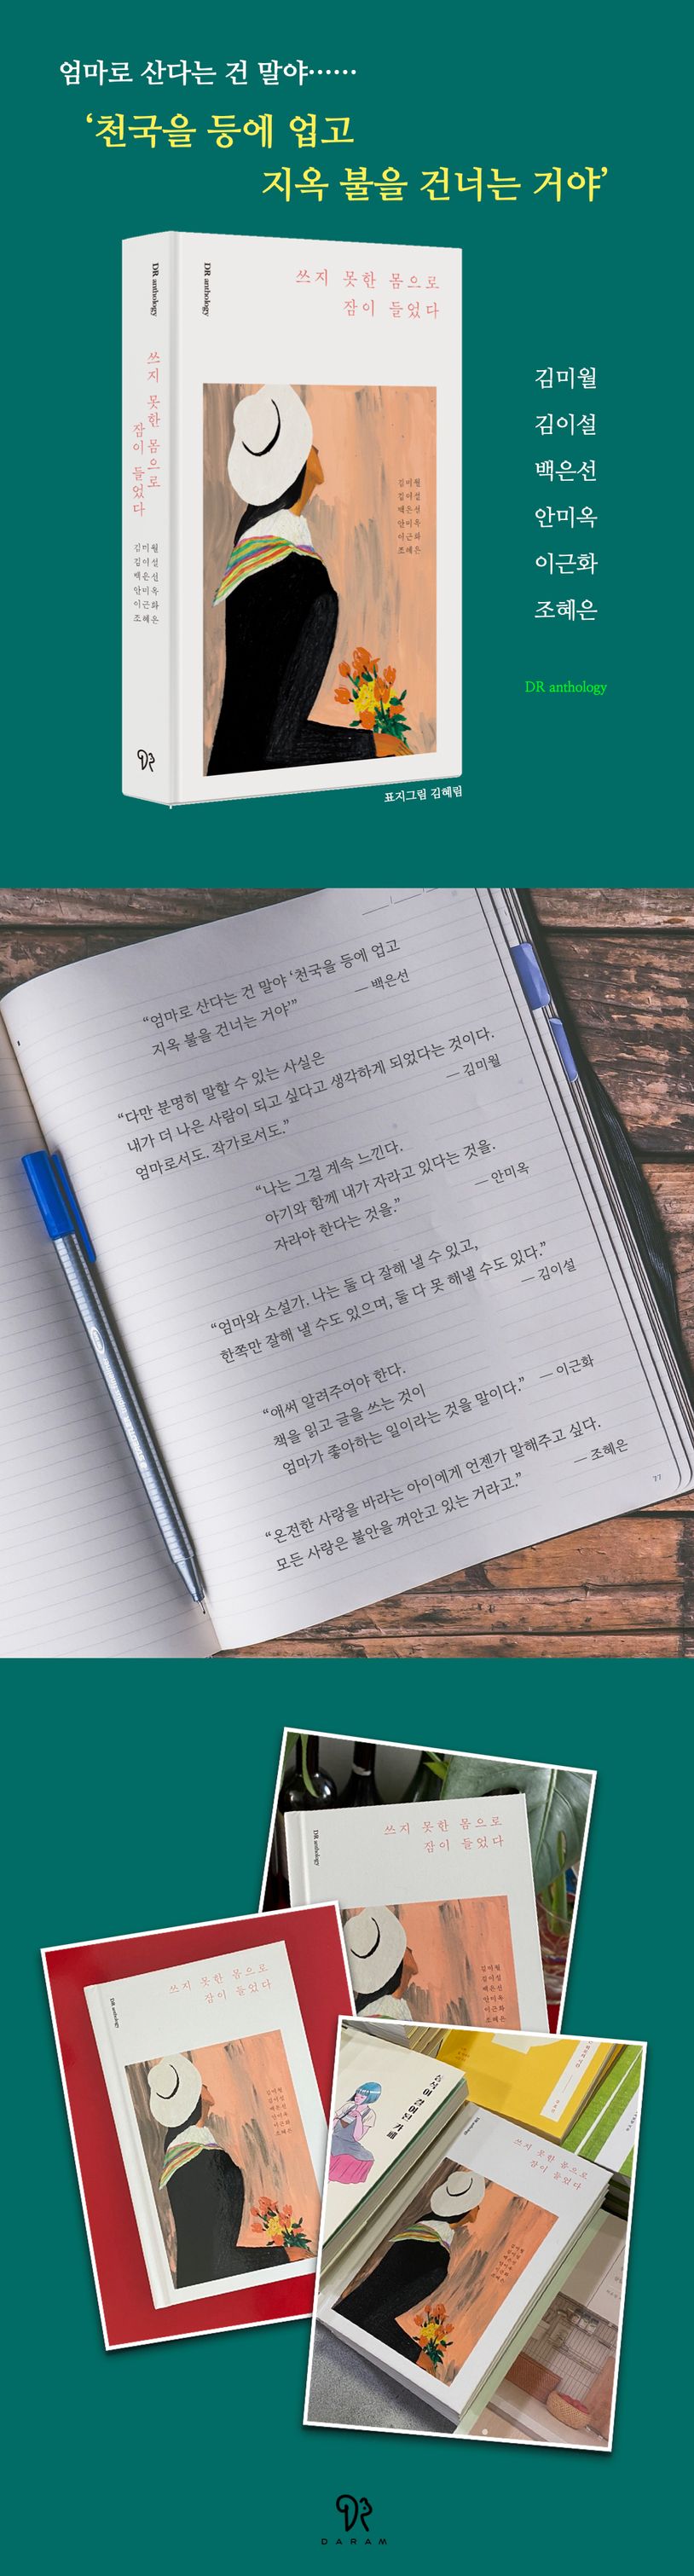 엄마로 산다는 건 말야……
‘천국을 등에 업고
지옥 불을 건너는 거야’
DR anthology
쓰지 못한 몸으로
잠이 들었다
김미월
김이설
백은선
안미옥
이근화
조혜은
DR anthology
쓰지 못한 몸으로
잠이 들었다
김미월
김이설
백은선
안미옥
이근화
조혜은
표지그림 김혜림
김미월
김이설
백은선
안미옥
이근화
조혜은
DR anthology
“엄마로 산다는 건 말야 ‘천국을 등에 업고
지옥 불을 건너는 거야’”
— 백은선
“다만 분명히 말할 수 있는 사실은
내가 더 나은 사람이 되고 싶다고 생각하게 되었다는 것이다.
엄마로서도. 작가로서도.”
— 김미월
“나는 그걸 계속 느낀다.
아기와 함께 내가 자라고 있다는 것을.
자라야 한다는 것을.”
— 안미옥
“엄마와 소설가. 나는 둘 다 잘해 낼 수 있고,
한쪽만 잘해 낼 수도 있으며, 둘 다 못 해낼 수도 있다.”
— 김이설
“애써 알려주어야 한다.
책을 읽고 글을 쓰는 것이
엄마가 좋아하는 일이라는 것을 말이다.” — 이근화
“온전한 사랑을 바라는 아이에게 언젠가 말해주고 싶다.
모든 사랑은 불안을 껴안고 있는 거라고.”
— 조혜은
77
DR anthology
쓰지 못한 몸으로
잠이 들었다
김미월
김이설
백은선
안미옥
이근화
조혜은
DR anthology
쓰지 못한 몸으로
잠이 들었다
김미월
김이설
백은선
안미옥
이근화
조혜은
쓰지 못한 몸으로
잠이 들었다
김미월
김이설
백은선
안미옥
이근화
조혜은
DARAM